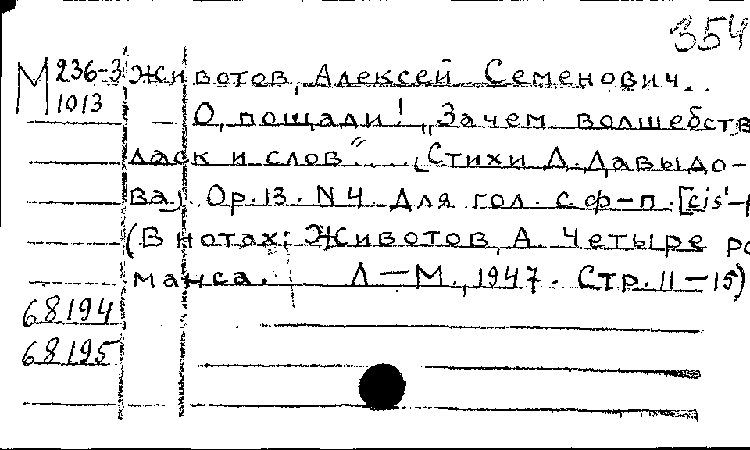 354
М 236-3 Животов, Алексей Семенович.
1013
О, пощади! „Зачем волшебств
ласк и слов"... (Стихи Д. Давыдо-
ва) Op. 13. N 4. Для гол. с ф-п. [cis'-
(В нотах: Животов, А. Четыре ро
манса. Л-М., 1947. Стр. 11-15)
68194
68195